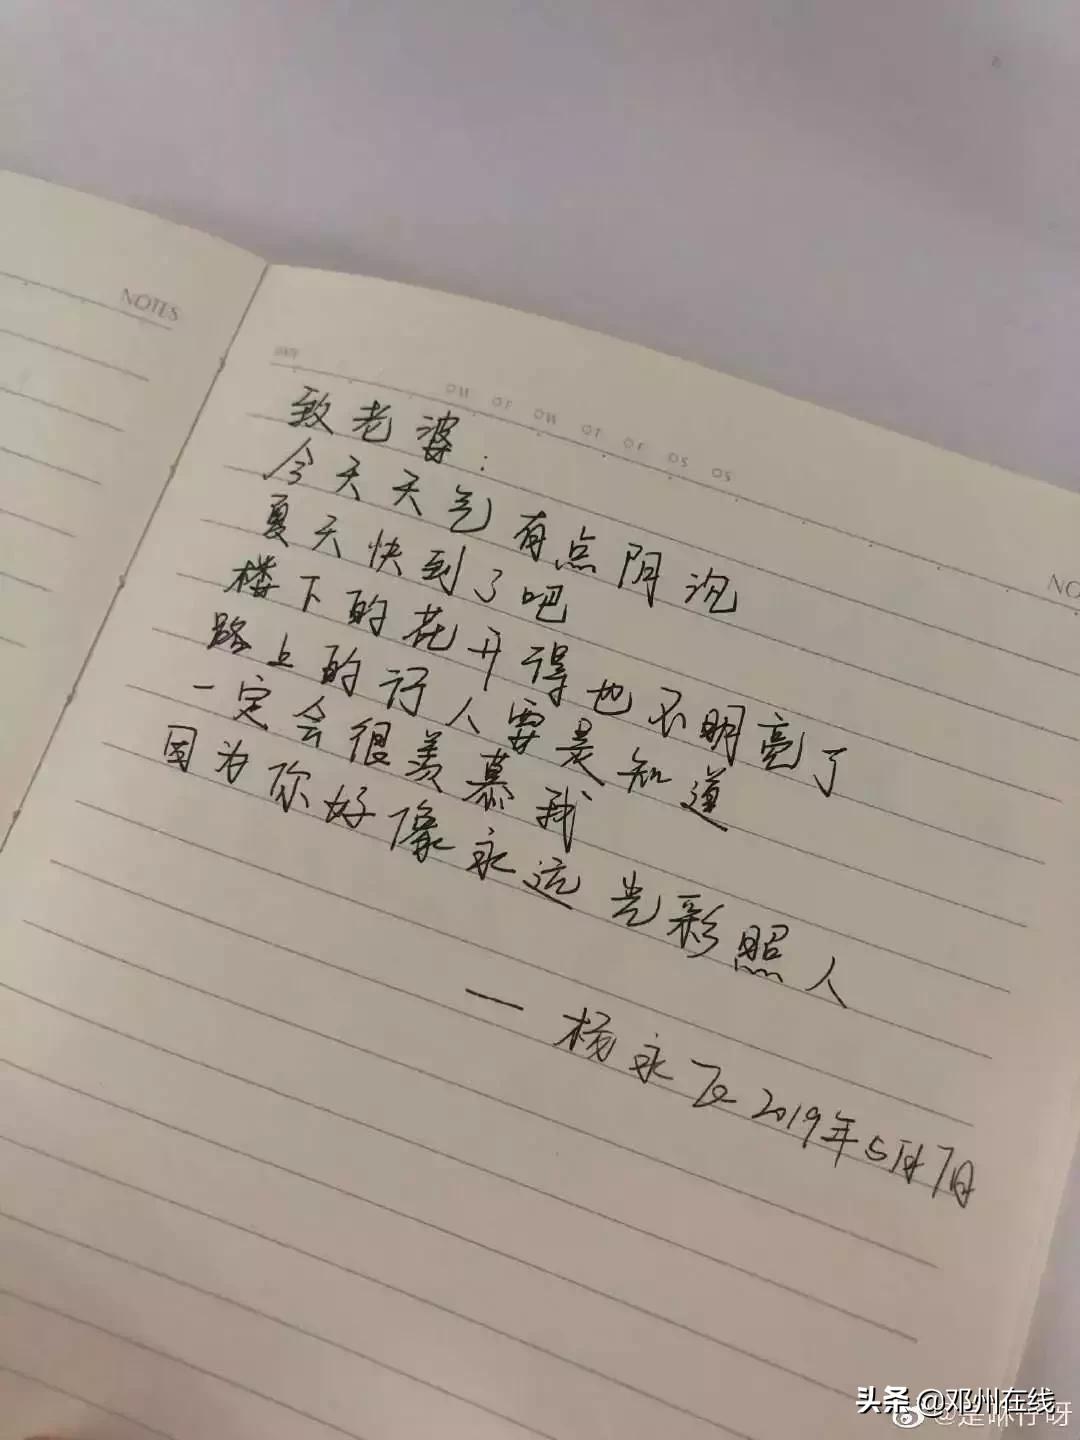 NOTES
DATE
致老婆:
今天天气有点阴沉
夏天快到了吧
楼下的花开得也不明亮了
路上的行人要是知道
一定会很羡慕我
因为你好像永远光彩照人
— 杨永飞2019年5月7日
头条@邓州在线